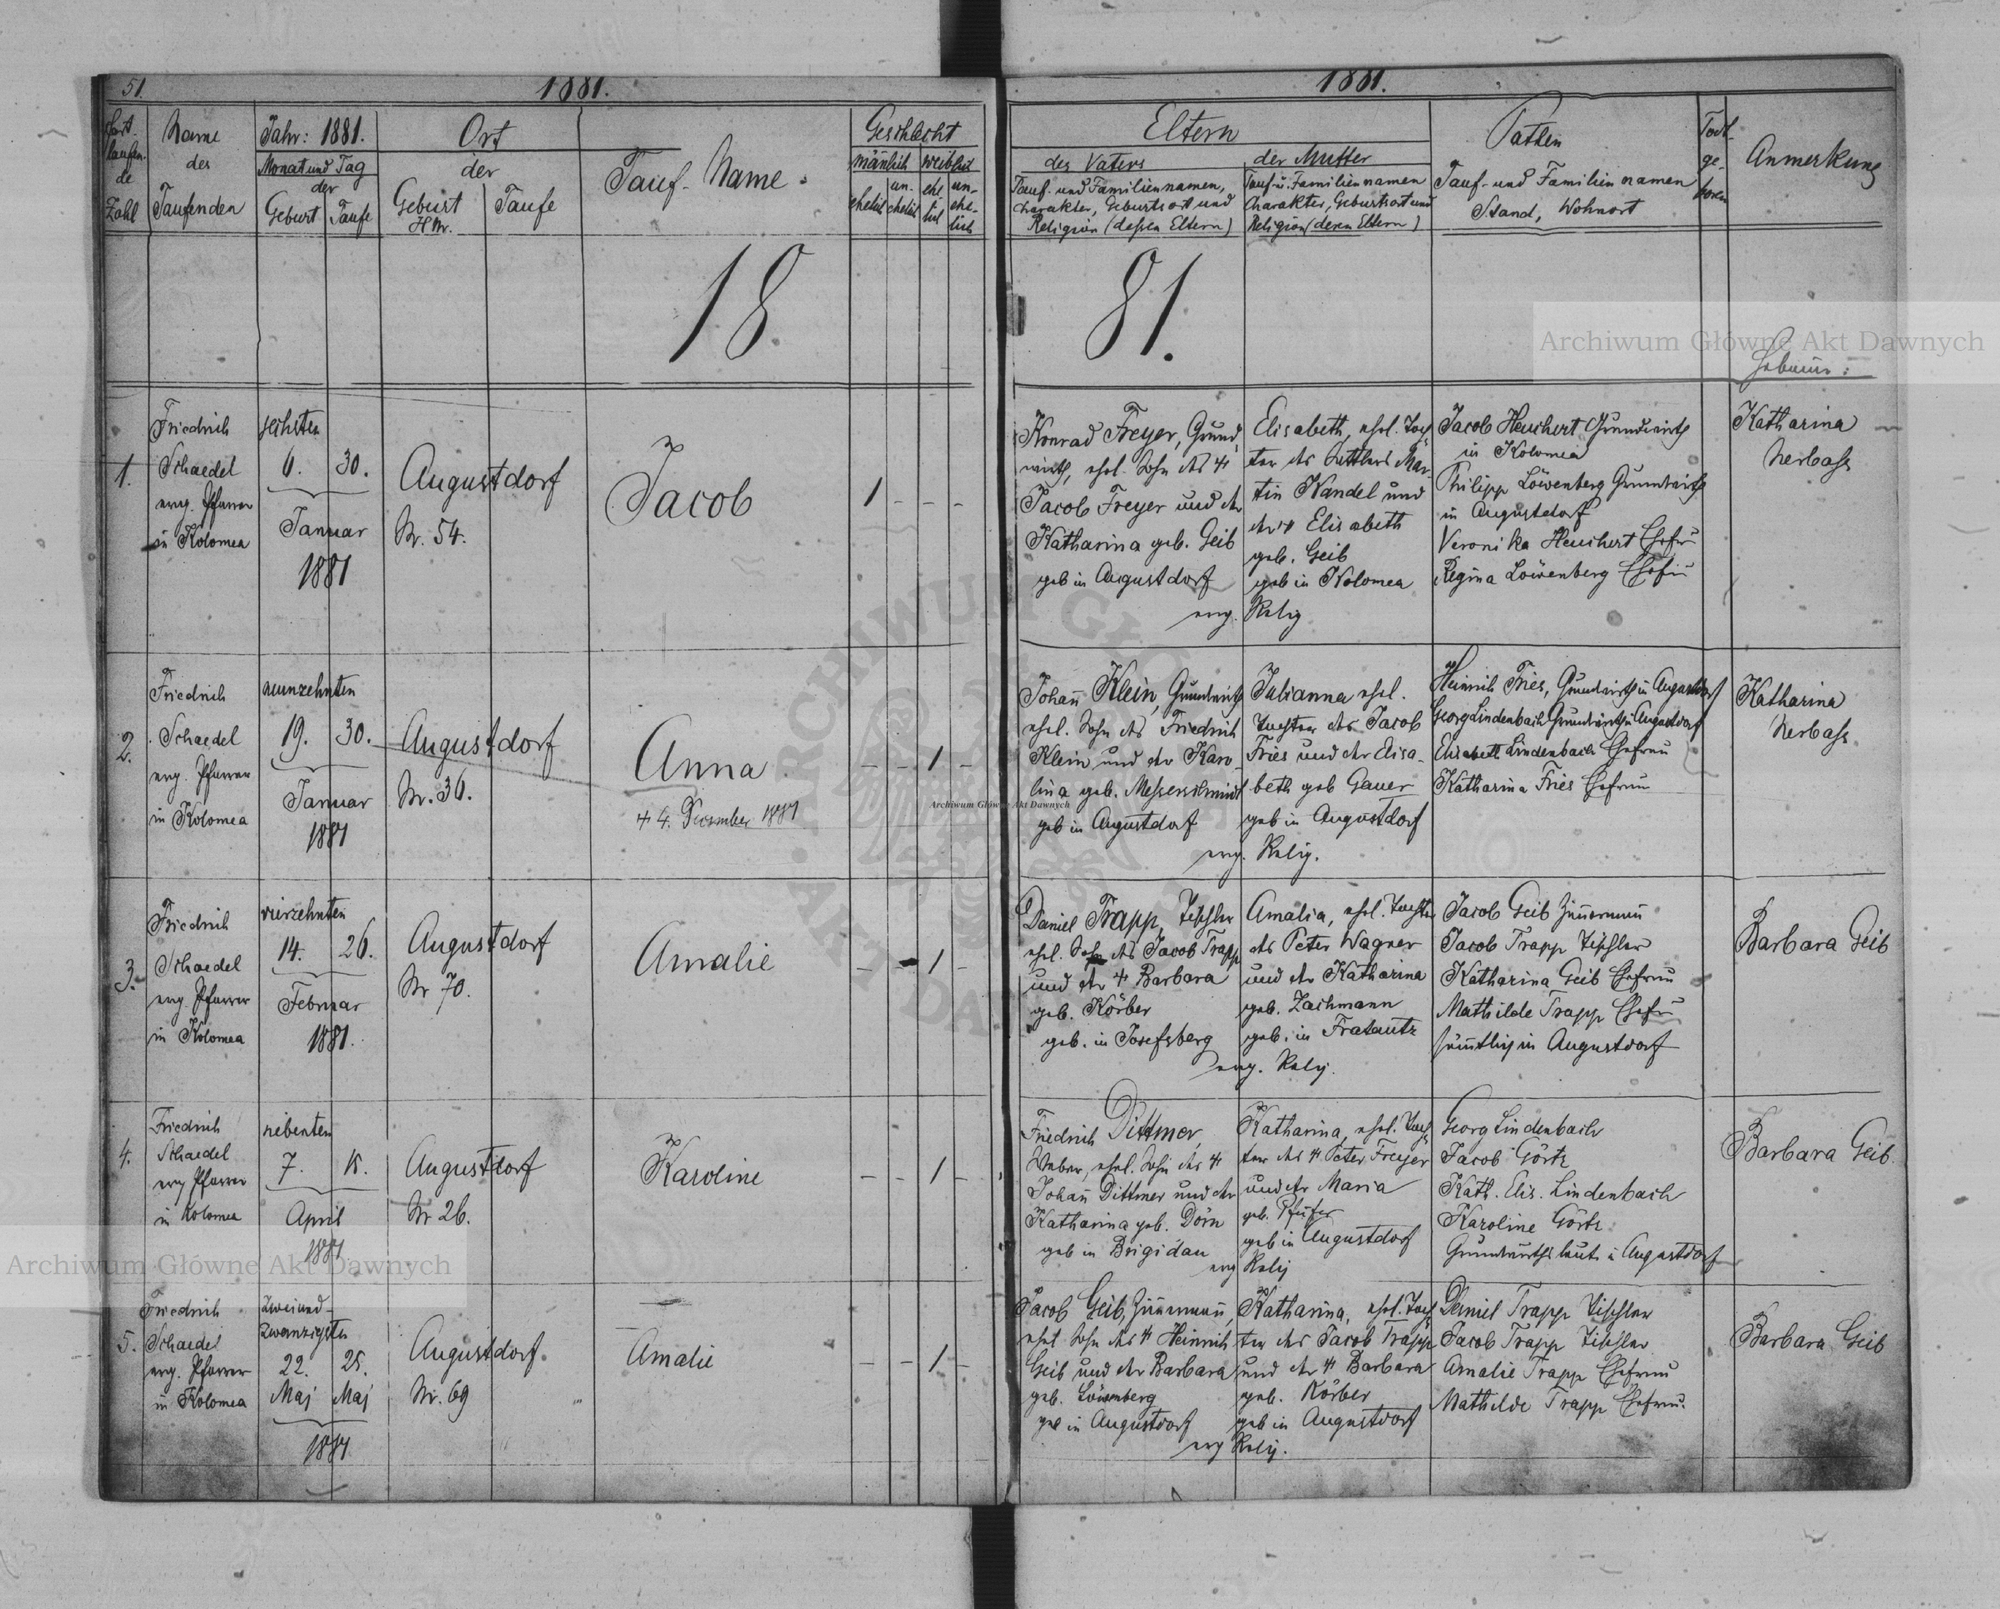 51.
1881.
Fort-
laufen-
de
Zahl
Name
des
Taufenden
Jahr: 1881.
Monat und Tag
der
Geburt
Taufe
Ort
der
Geburt
H Nr.
Taufe
Tauf-Name.
Geschlecht
männlich
weiblich
ehelich
un-
ehelich
ehe
lich
un-
ehe-
lich
18
1.
Friedrich
Schaedel
evng. Pfarrer
in Kolomea
sechsten
6. 30.
Januar
1881
Augustdorf
Nr. 54.
Jacob
1 - - -
2.
Friedrich
Schaedel
evg. Pfarrer
in Kolomea
neunzehnten
19. 30.
Januar
1881
Augustdorf
Nr. 36.
Anna
+ 4. Dezember 1881
- - 1 -
3.
Friedrich
Schaedel
evg. Pfarrer
in Kolomea
vierzehnten
14. 26.
Februar
1881.
Augustdorf
Nr 70.
Amalie
- - 1 -
4.
Friedrich
Schaedel
evg Pfarrer
in Kolomea
siebenten
7.
April
1881
Augustdorf
Nr 26.
Karoline
- - 1 -
5.
Friedrich
Schaedel
evg. Pfarrer
in Kolomea
Zweiund-
zwanzigsten
22. 25.
Maj Maj
1881
Augustdorf.
Nr. 69
Amalie
- - 1 -
1881.
Eltern
des Vaters
Tauf- und Familiennamen,
Charakter, Geburtsort und
Religion (dessen Eltern)
der Mutter
Tauf- u. Familiennamen
Charakter, Geburtsort und
Religion (deren Eltern)
Pathen
Tauf- und Familiennamen
Stand, Wohnort
Todt-
ge-
boren
Anmerkung
81.
Hebamme:
Konrad Freyer, Grund-
wirth, ehel. Sohn des +
Jacob Freyer und der
Katharina geb. Geib
geb in Augustdorf
evg.
Elisabeth, ehel. Toch-
ter des Mar-
tin Kandel und
der + Elisabeth
geb. Geib
geb in Kolomea
Relig
Jacob Heuchert Grundwirth
in Kolomea
Philipp Löwenberg Grundwirth
in Augustdorf
Veronika Heuchert Ehefrau
Regina Löwenberg Ehefrau
Katharina
Nerbass
Johann Klein, Grundwirth
ehel. Sohn des Friedrich
Klein und der Karo-
lina geb. Messerschmidt
geb in Augustdorf
evg.
Julianna ehel.
Tochter des Jacob
Fries und der Elisa-
beth geb Gauer
geb in Augustdorf
Relig.
Heinrich Fries, Grundwirth in Augustdorf
Georg Lindenbach Grundwirth in Augustdorf
Elisabeth Lindenbach Ehefrau
Katharina Fries Ehefrau
Katharina
Nerbass
Daniel Trapp, Tischler
ehel. Sohn des Jacob Trapp
und der + Barbara
geb. Körber
geb. in Josefsberg
evg.
Amalia, ehel. Tochter
des Peter Wagner
und der Katharina
geb. Zachmann
geb. in Fratautz
Relig.
Jacob Geib Zimmermann
Jacob Trapp Tischler
Katharina Geib Ehefrau
Mathilde Trapp Ehefrau
sämtlich in Augustdorf
Barbara Geib
Friedrich Dittmer,
Weber, ehel. Sohn des +
Johann Dittmer und der
Katharina geb. Dörn
geb in Brigidau
evg
Katharina, ehel. Toch-
ter des + Peter Freyer
und der Maria
geb.
geb in Augustdorf
Relig
Georg Lindenbach
Jacob Görtz
Kath. Elis. Lindenbach
Karoline Görtz
Grundwirthsleute in Augustdorf
Barbara Geib.
Jacob Geib, Zimmermann,
ehel Sohn des + Heinrich
Geib und der Barbara
geb. Löwenberg
geb in Augustdorf
evg
Katharina, ehel. Toch-
ter des Jacob Trapp
und der + Barbara
geb. Körber
geb in Augustdorf
Relig.
Daniel Trapp Tischler
Jacob Trapp Tischler
Amalie Trapp Ehefrau
Mathilde Trapp Ehefrau.
Barbara Geib
Archiwum Główne Akt Dawnych
Archiwum Główne Akt Dawnych
Archiwum Główne Akt Dawnych